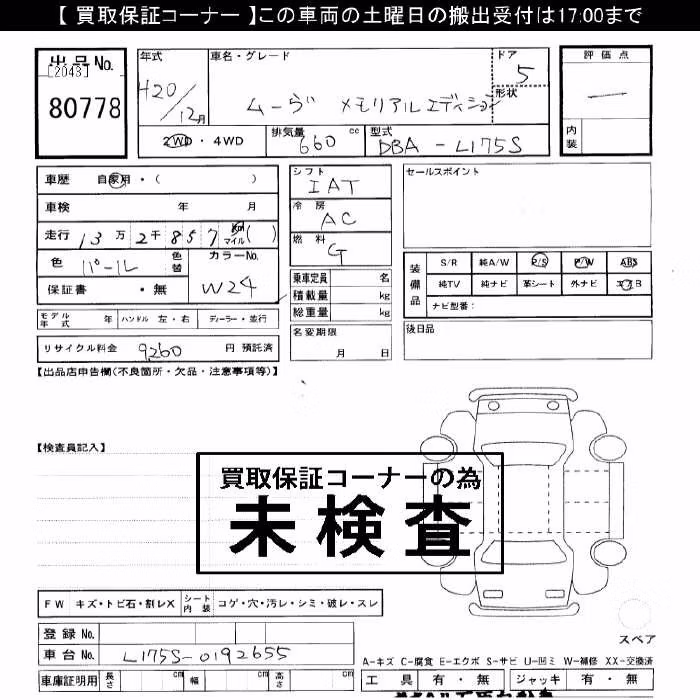 【 買取保証コーナー 】この車両の土曜日の搬出受付は17:00まで
出品No.
[2043]
80778
年式
H20/12月
車名・グレード
ムーヴ メモリアルエディション
ドア
5
形状
2WD・4WD
排気量
660 cc
型式
DBA-L175S
評価点
―
内装
車歴 自家用・( )
車検 年 月
走行 13万2千857 km マイル ( )
色 パール 色替
カラーNo.
W24
保証書 ・無
シフト
IAT
冷房
AC
燃料
G
乗車定員 名
積載量 kg
総重量 kg
セールスポイント
装備品
S/R 純A/W P/S P/W ABS
純TV 純ナビ 革シート 外ナビ エアB
ナビ型番:
モデル年式 年 ハンドル 左・右 ディーラー・並行
名変期限
月 日
後日品
リサイクル料金 9260 円 預託済
【出品店申告欄(不良箇所・欠品・注意事項等)】
【検査員記入】
買取保証コーナーの為
未検査
FW キズ・トビ石・割レX シート内装 コゲ・穴・汚レ・シミ・破レ・スレ
スペア
登録No.
車台No. L175S-0192655
車庫証明用 長さ cm 幅 cm 高さ cm
A-キズ C-腐食 E-エクボ S-サビ U-凹ミ W-補修 XX-交換済
工具 有・無 ジャッキ 有・無